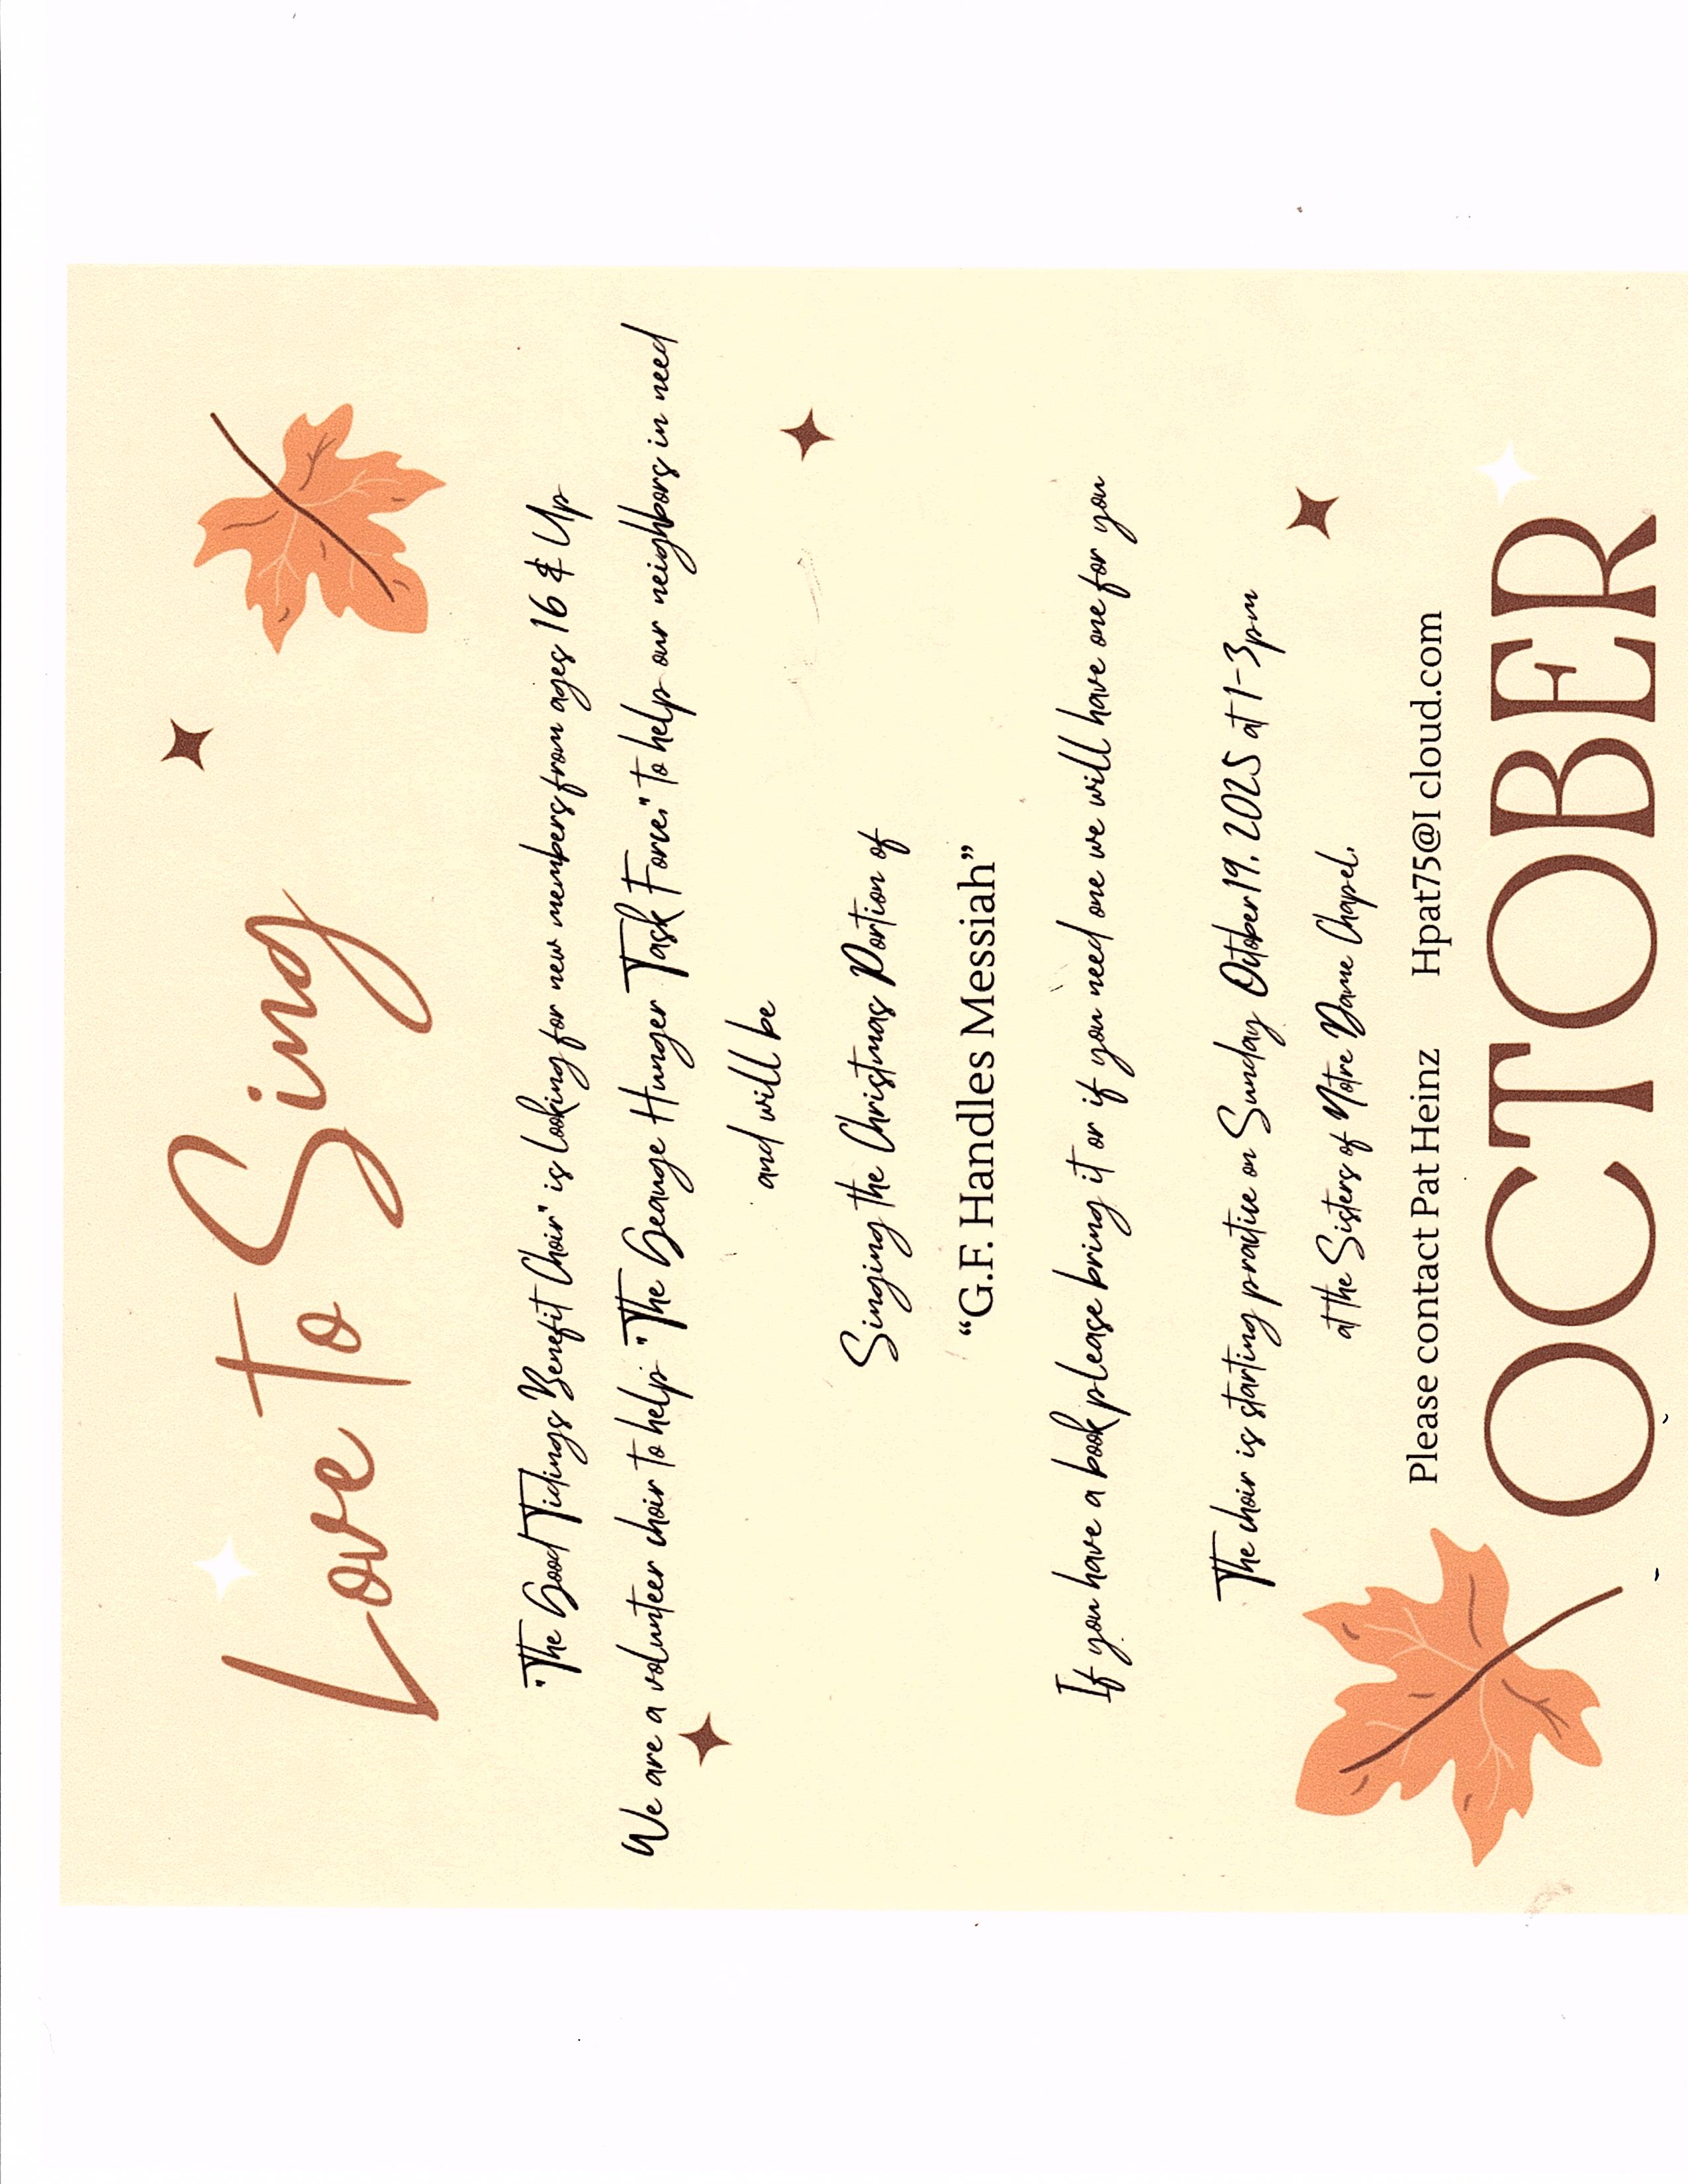 Love to Sing
"The Good Tidings Benefit Choir" is looking for new members from ages 16 & Up
We are a volunteer choir to help: "The Geauge Hunger Task Force." to help our neighbors in need
and will be
Singing the Christmas Portion of
“G.F. Handles Messiah”
If you have a book please bring it or if you need one we will have one for you
The choir is starting practice on Sunday October 19, 2025 at 1-3pm
at the Sisters of Notre Dame Chapel.
Please contact Pat Heinz Hpat75@I cloud.com
OCTOBER